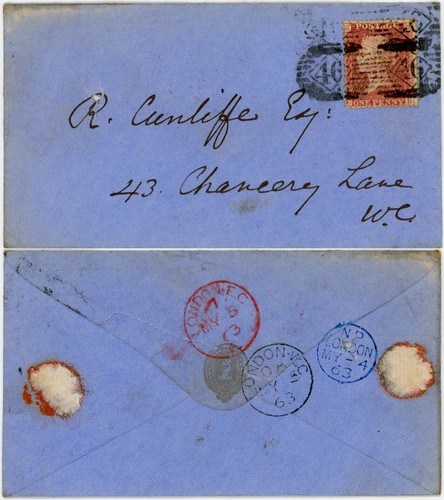 POSTAGE
ONE PENNY
R. Cunliffe Esq:
43. Chancery Lane
W.C.
LONDON·E.C
7
MY 5
63
LONDON·W.C
MY 5
63
N.P
LONDON
MY 4
63